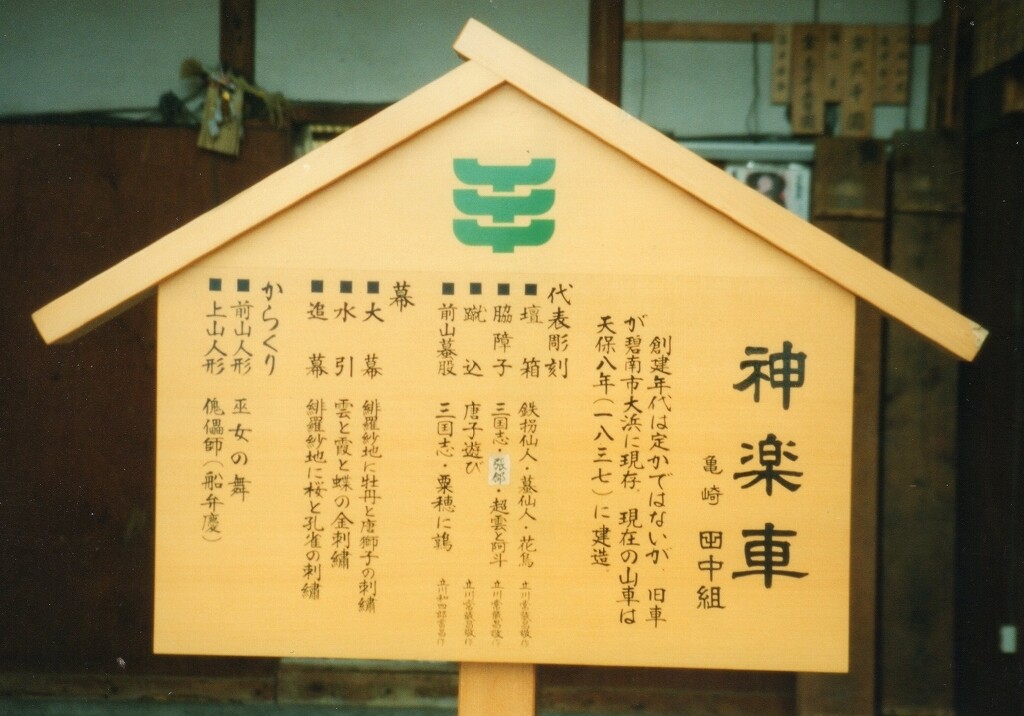 神楽車
亀崎 田中組
創建年代は定かではないが、旧車
が碧南市大浜に現存、現在の山車は
天保八年(一八三七)に建造。
代表彫刻
■壇箱 鉄拐仙人・蟇仙人・花鳥 立川常蔵昌敬作
■脇障子 三国志・張郃・超雲と阿斗 立川常蔵昌敬作
■蹴込 唐子遊び 立川常蔵昌敬作
■前山蟇股 三国志・粟穂に鶉 立川和四郎富昌作
幕
■大幕 緋羅紗地に牡丹と唐獅子の刺繍
■水引 雲と霞と蝶の金刺繍
■追幕 緋羅紗地に桜と孔雀の刺繍
からくり
■前山人形 巫女の舞
■上山人形 傀儡師(船弁慶)